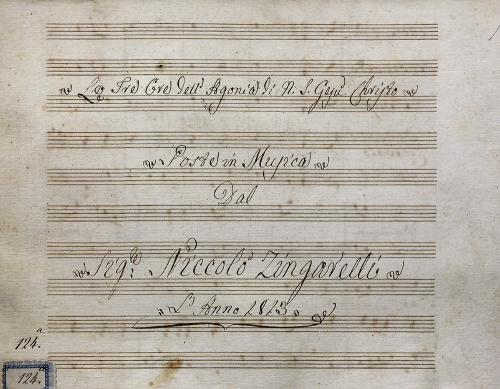 Le Tre Ore dell' Agonia di N. S. Gesù Christo
Poste in Musica
Dal
Sig.r Niccolò Zingarelli
L' Anno 1823
124.a
124.